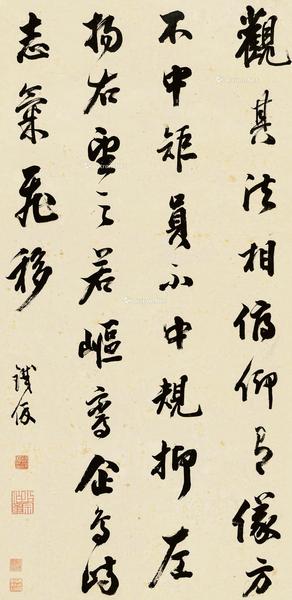 觀其法相俯仰有儀方
不中矩員不中規抑左
揚右望之若嶇鸞企鳥峙
志氣飛移
鐵保